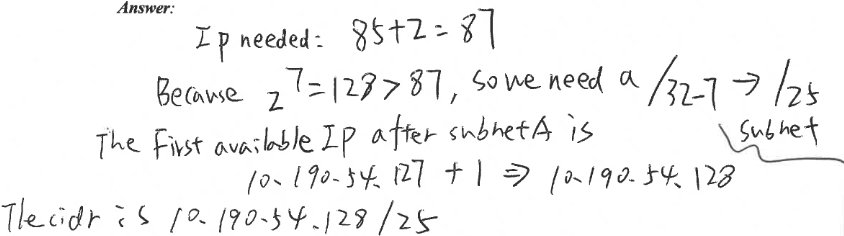 Answer:
Ip needed: 85+2=87
Because 2^7=128>87, so we need a /32-7 → /25
subnet
The First available IP after subnet A is
10.190.54.127 + 1 ⇒ 10.190.54.128
The cidr is 10.190.54.128 /25